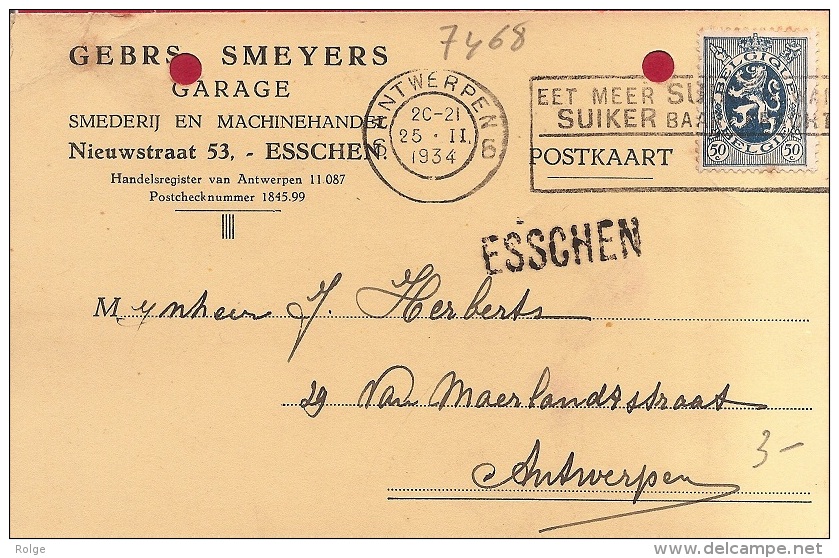 7468
GEBRS. SMEYERS
GARAGE
SMEDERIJ EN MACHINEHANDEL
Nieuwstraat 53, - ESSCHEN.
Handelsregister van Antwerpen 11.087
Postcheckrekening 1845.99
ANTWERPEN 6
20-21
25 · II.
1934
EET MEER
SUIKER
BELGIQUE
BELGIE
50 50
POSTKAART
ESSCHEN
Mynheer J. Herberts
29 Van Maerlandtstraat
3-
Antwerpen
Rolge
delcampe.net